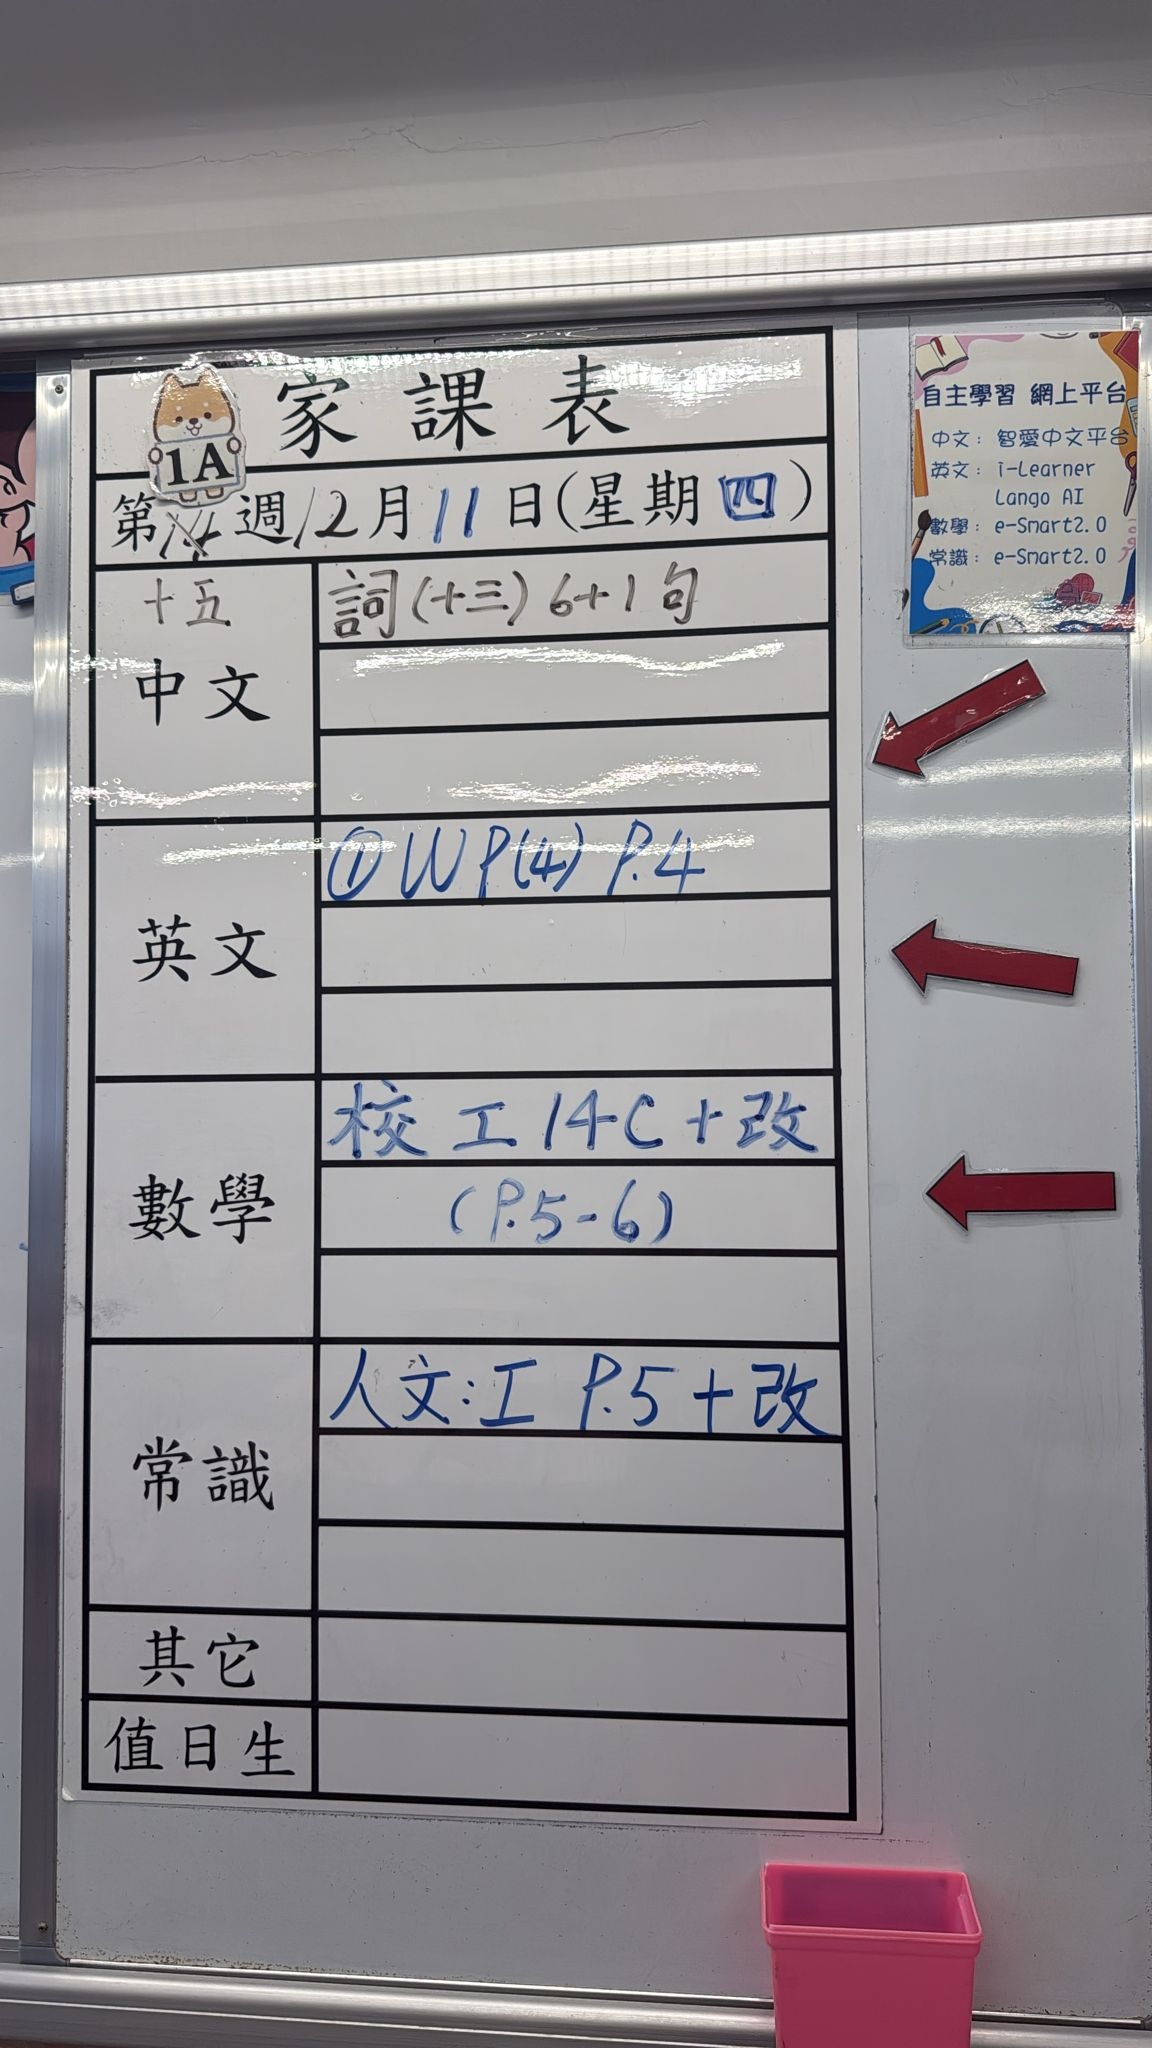 家課表
1A
第14週12月11日(星期四)
十五
中文
詞(十三)6+1句
英文
①WP(4) P.4
數學
校 工 14C+改
(P.5-6)
常識
人文:工 P.5+改
其它
值日生
自主學習 網上平台
中文: 智愛中文平台
英文: i-Learner
Lango AI
數學: e-Smart2.0
常識: e-Smart2.0